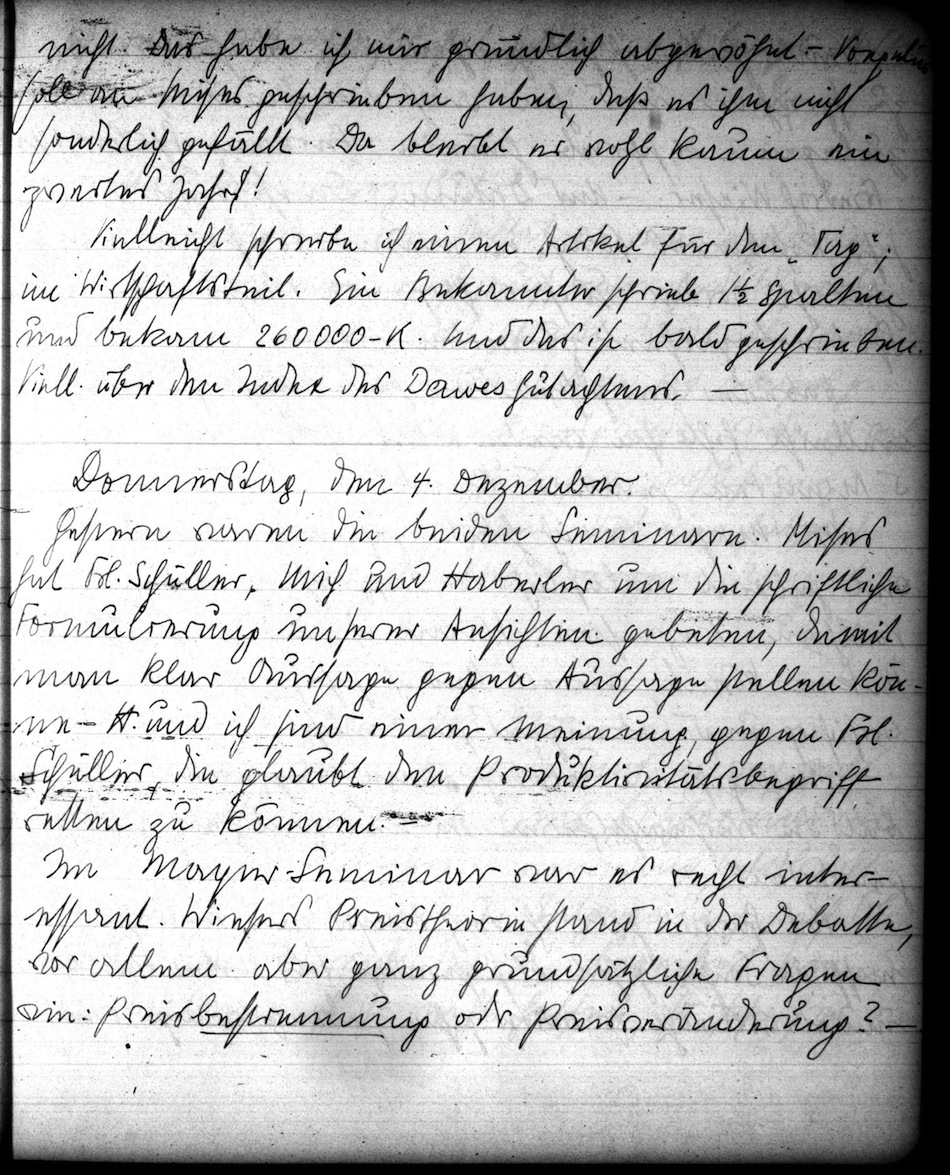 nicht. Das habe ich mir gründlich abgewöhnt –
soll an Mises geschrieben haben, daß es ihm nicht
sonderlich gefällt. Da bleibt er wohl kaum ein
zweites Jahr!
Vielleicht schreibe ich einen Artikel für den „Tag“,
im Wirtschaftsteil. Ein Bekannter schrieb 1½ Spalten
und bekam 260000-K. Und das ist bald geschrieben.
Viell. über den Index des Dawesgutachtens. —
Donnerstag, den 4. Dezember.
Gestern waren die beiden Seminare. Mises
hat Frl. Schüller, mich und Haberler um die schriftliche
Formulierung unserer Ansichten gebeten, damit
man klar Aussage gegen Aussage stellen kön-
ne – H. und ich sind einer Meinung, gegen Frl.
Schüller, die glaubt den Produktivitätsbegriff
retten zu können. –
Im Mayer-Seminar war es recht inter-
essant. Wiesers Preistheorie stand in der Debatte,
vor allem aber ganz grundsätzliche Fragen
wie: Preisbestimmung oder Preisveränderung? —